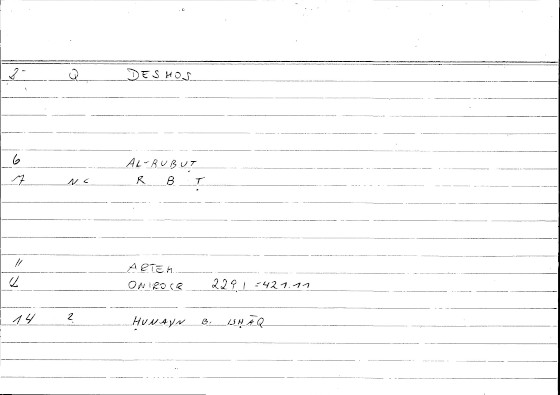 2 Q DESMOS
6 AL-RUBUṬ
7 NC R B Ṭ
11 ARTEM
4 ONIROCR 229,1 = 421.11
14 2 ḤUNAYN B. ISḤĀQ